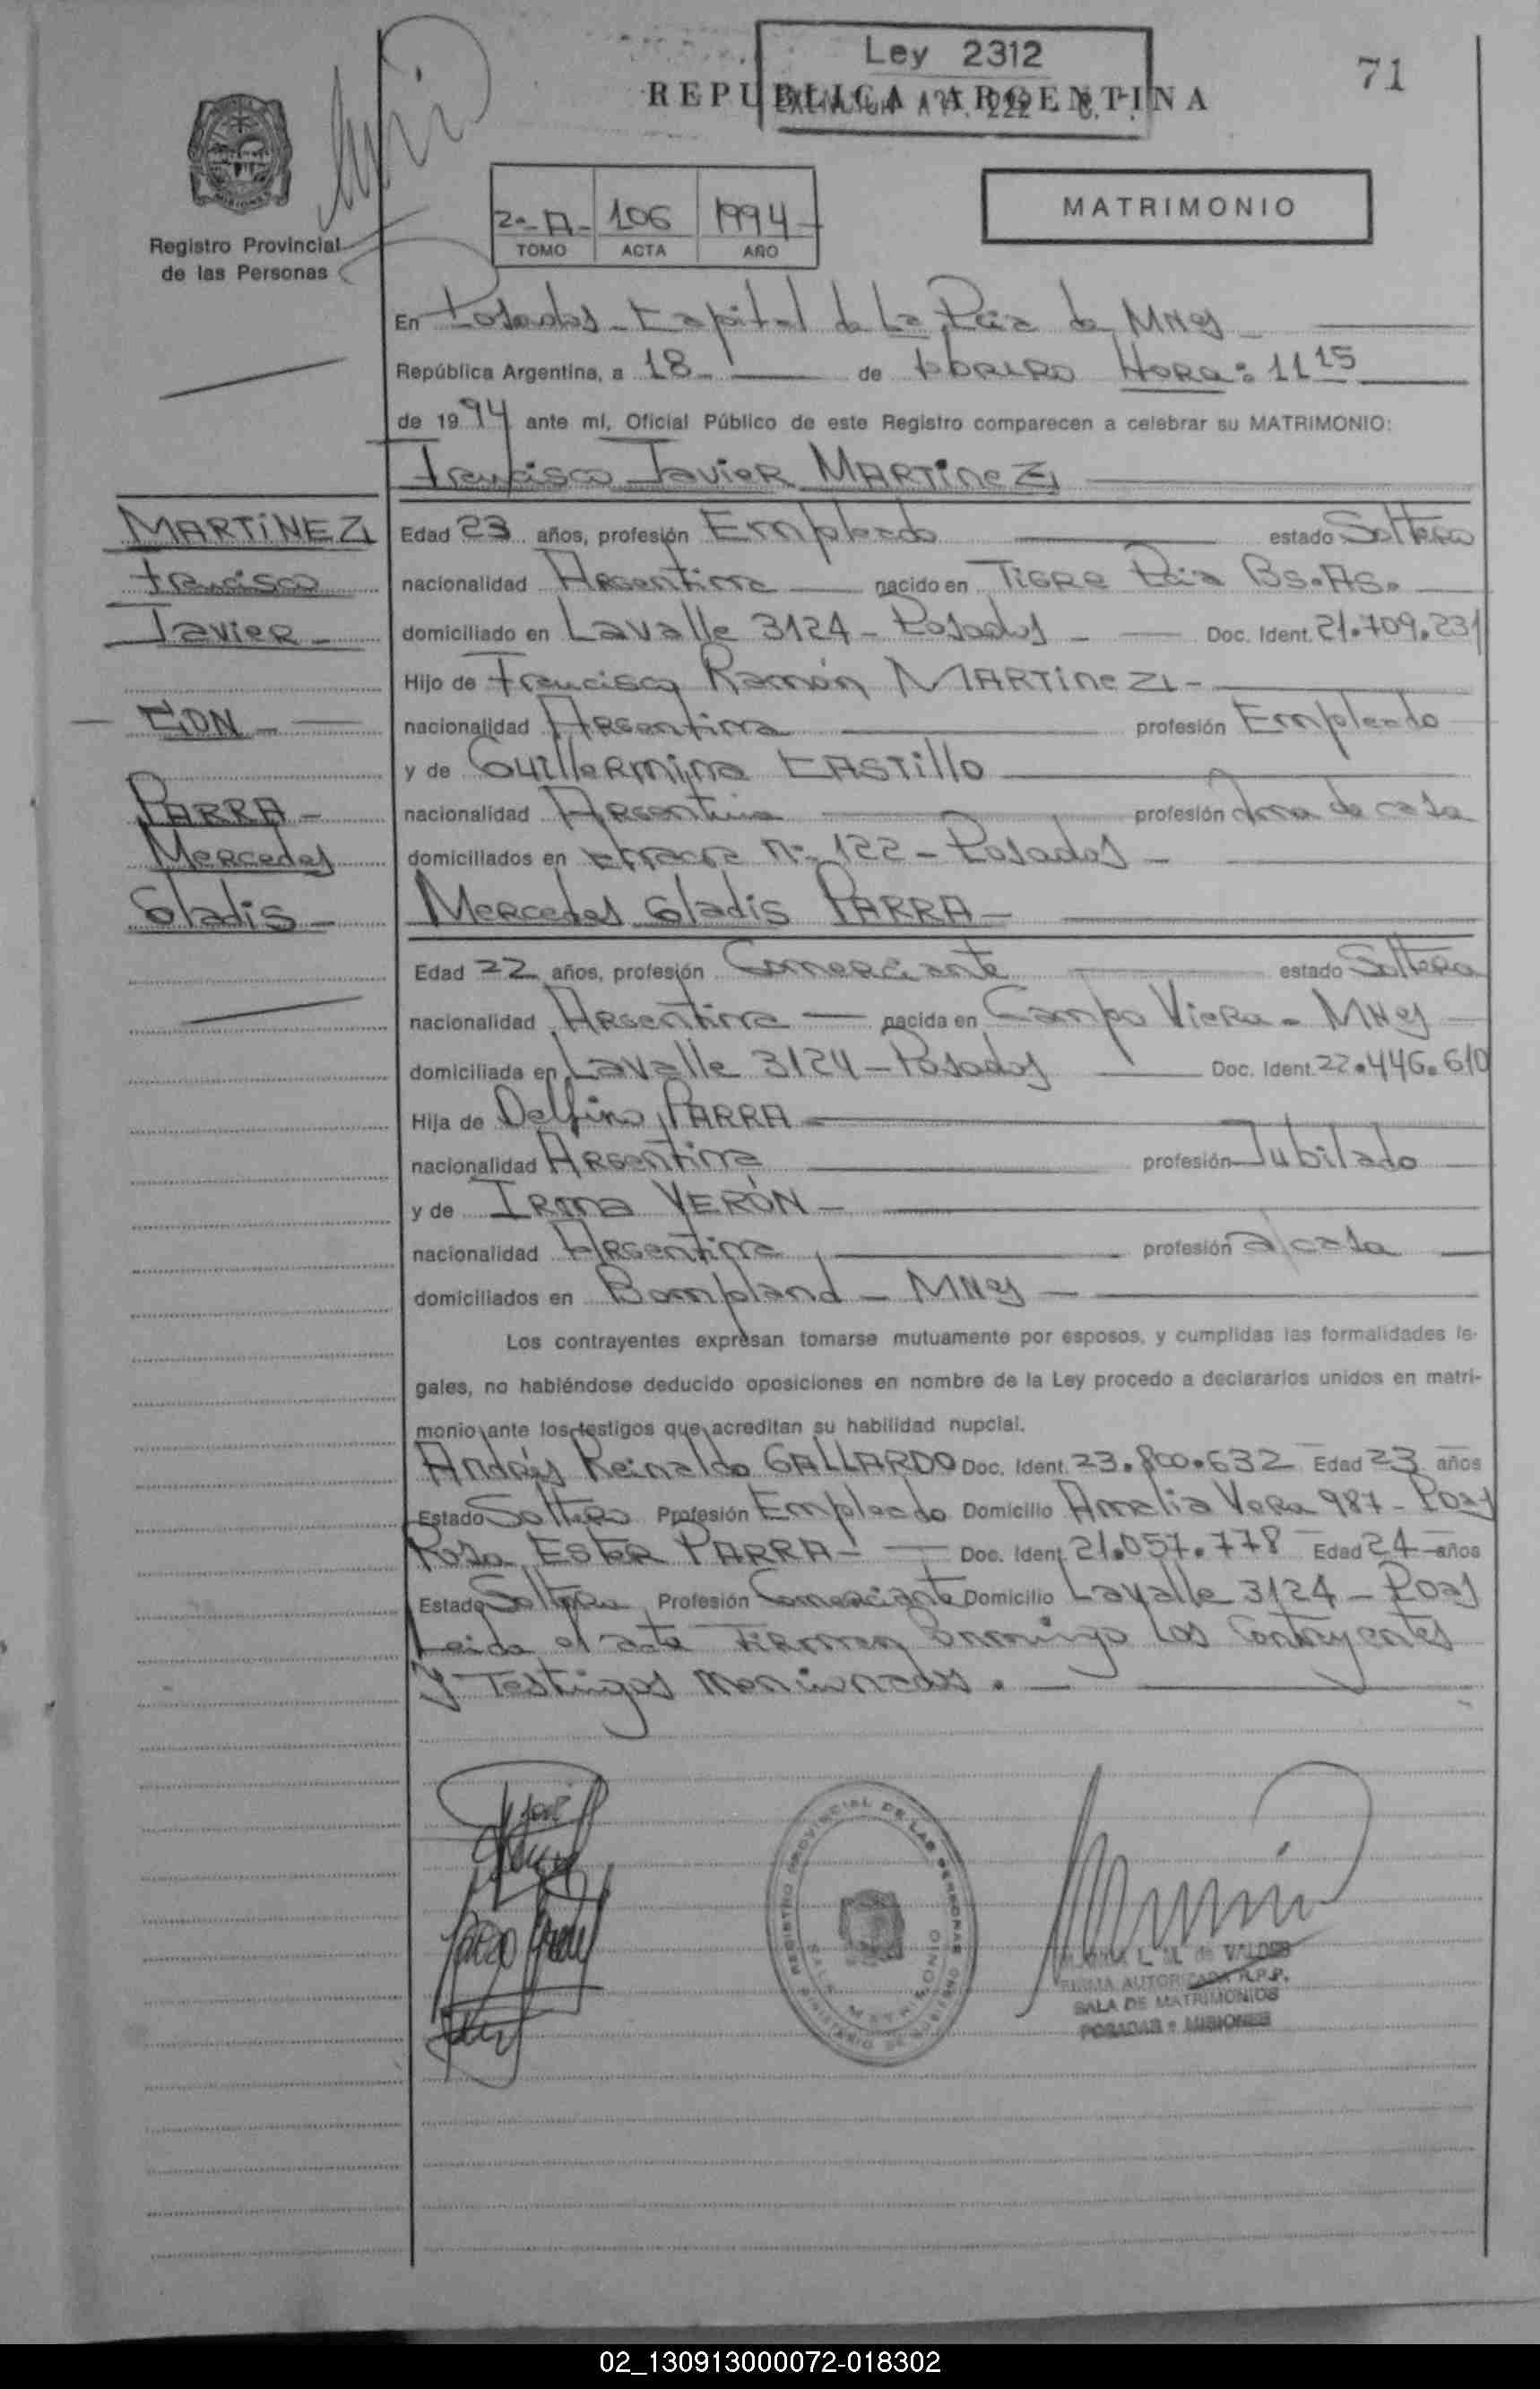 Ley 2312
71
REPUBLICA ARGENTINA
2º A- 106 1994-
TOMO ACTA AÑO
MATRIMONIO
Registro Provincial
de las Personas
En Posadas - Capital de La Pcia de Mnes
República Argentina, a 18 - de Febrero Hora: 11 15
de 1994 ante mí, Oficial Público de este Registro comparecen a celebrar su MATRIMONIO:
Francisco Javier MARTINEZ
MARTINEZ
Francisco
Javier -
- CON -
PARRA -
Mercedes
Gladis -
Edad 23 años, profesión Empleado estado Soltero
nacionalidad Argentina nacido en Tigre Pcia Bs.As.
domiciliado en Lavalle 3124 - Posadas - Doc. Ident. 21.709.231
Hijo de Francisco Ramón MARTINEZ -
nacionalidad Argentina profesión Empleado
y de Guillermina CASTILLO
nacionalidad Argentina profesión Ama de casa
domiciliados en nº 122 - Posadas -
Mercedes Gladis PARRA -
Edad 22 años, profesión Comerciante estado Soltera
nacionalidad Argentina nacida en Campo Viera - Mnes
domiciliada en Lavalle 3124 - Posadas Doc. Ident. 22.446.610
Hija de Delfino PARRA -
nacionalidad Argentina profesión Jubilado
y de IRMA VERÓN -
nacionalidad Argentina profesión a/casa
domiciliados en Bompland - Mnes -
Los contrayentes expresan tomarse mutuamente por esposos, y cumplidas las formalidades le-
gales, no habiéndose deducido oposiciones en nombre de la Ley procedo a declararlos unidos en matri-
monio ante los testigos que acreditan su habilidad nupcial.
Andrés Reinaldo GALLARDO Doc. Ident. 23.800.632 Edad 23 años
Estado Soltero Profesión Empleado Domicilio Amelia Vera 987 - Pdas
Rosa Ester PARRA - Doc. Ident. 21.057.778 Edad 24 años
Estado Soltera Profesión Comerciante Domicilio Lavalle 3124 - Pdas
Leida el acta Firman conmigo los Contrayentes
y Testigos mencionados. -
REGISTRO PROVINCIAL DE LAS PERSONAS
MINISTERIO DE GOBIERNO
SALA MATRIMONIO
L. M. de VALDES
FIRMA AUTORIZADA R.P.P.
SALA DE MATRIMONIOS
POSADAS - MISIONES
02_130913000072-018302